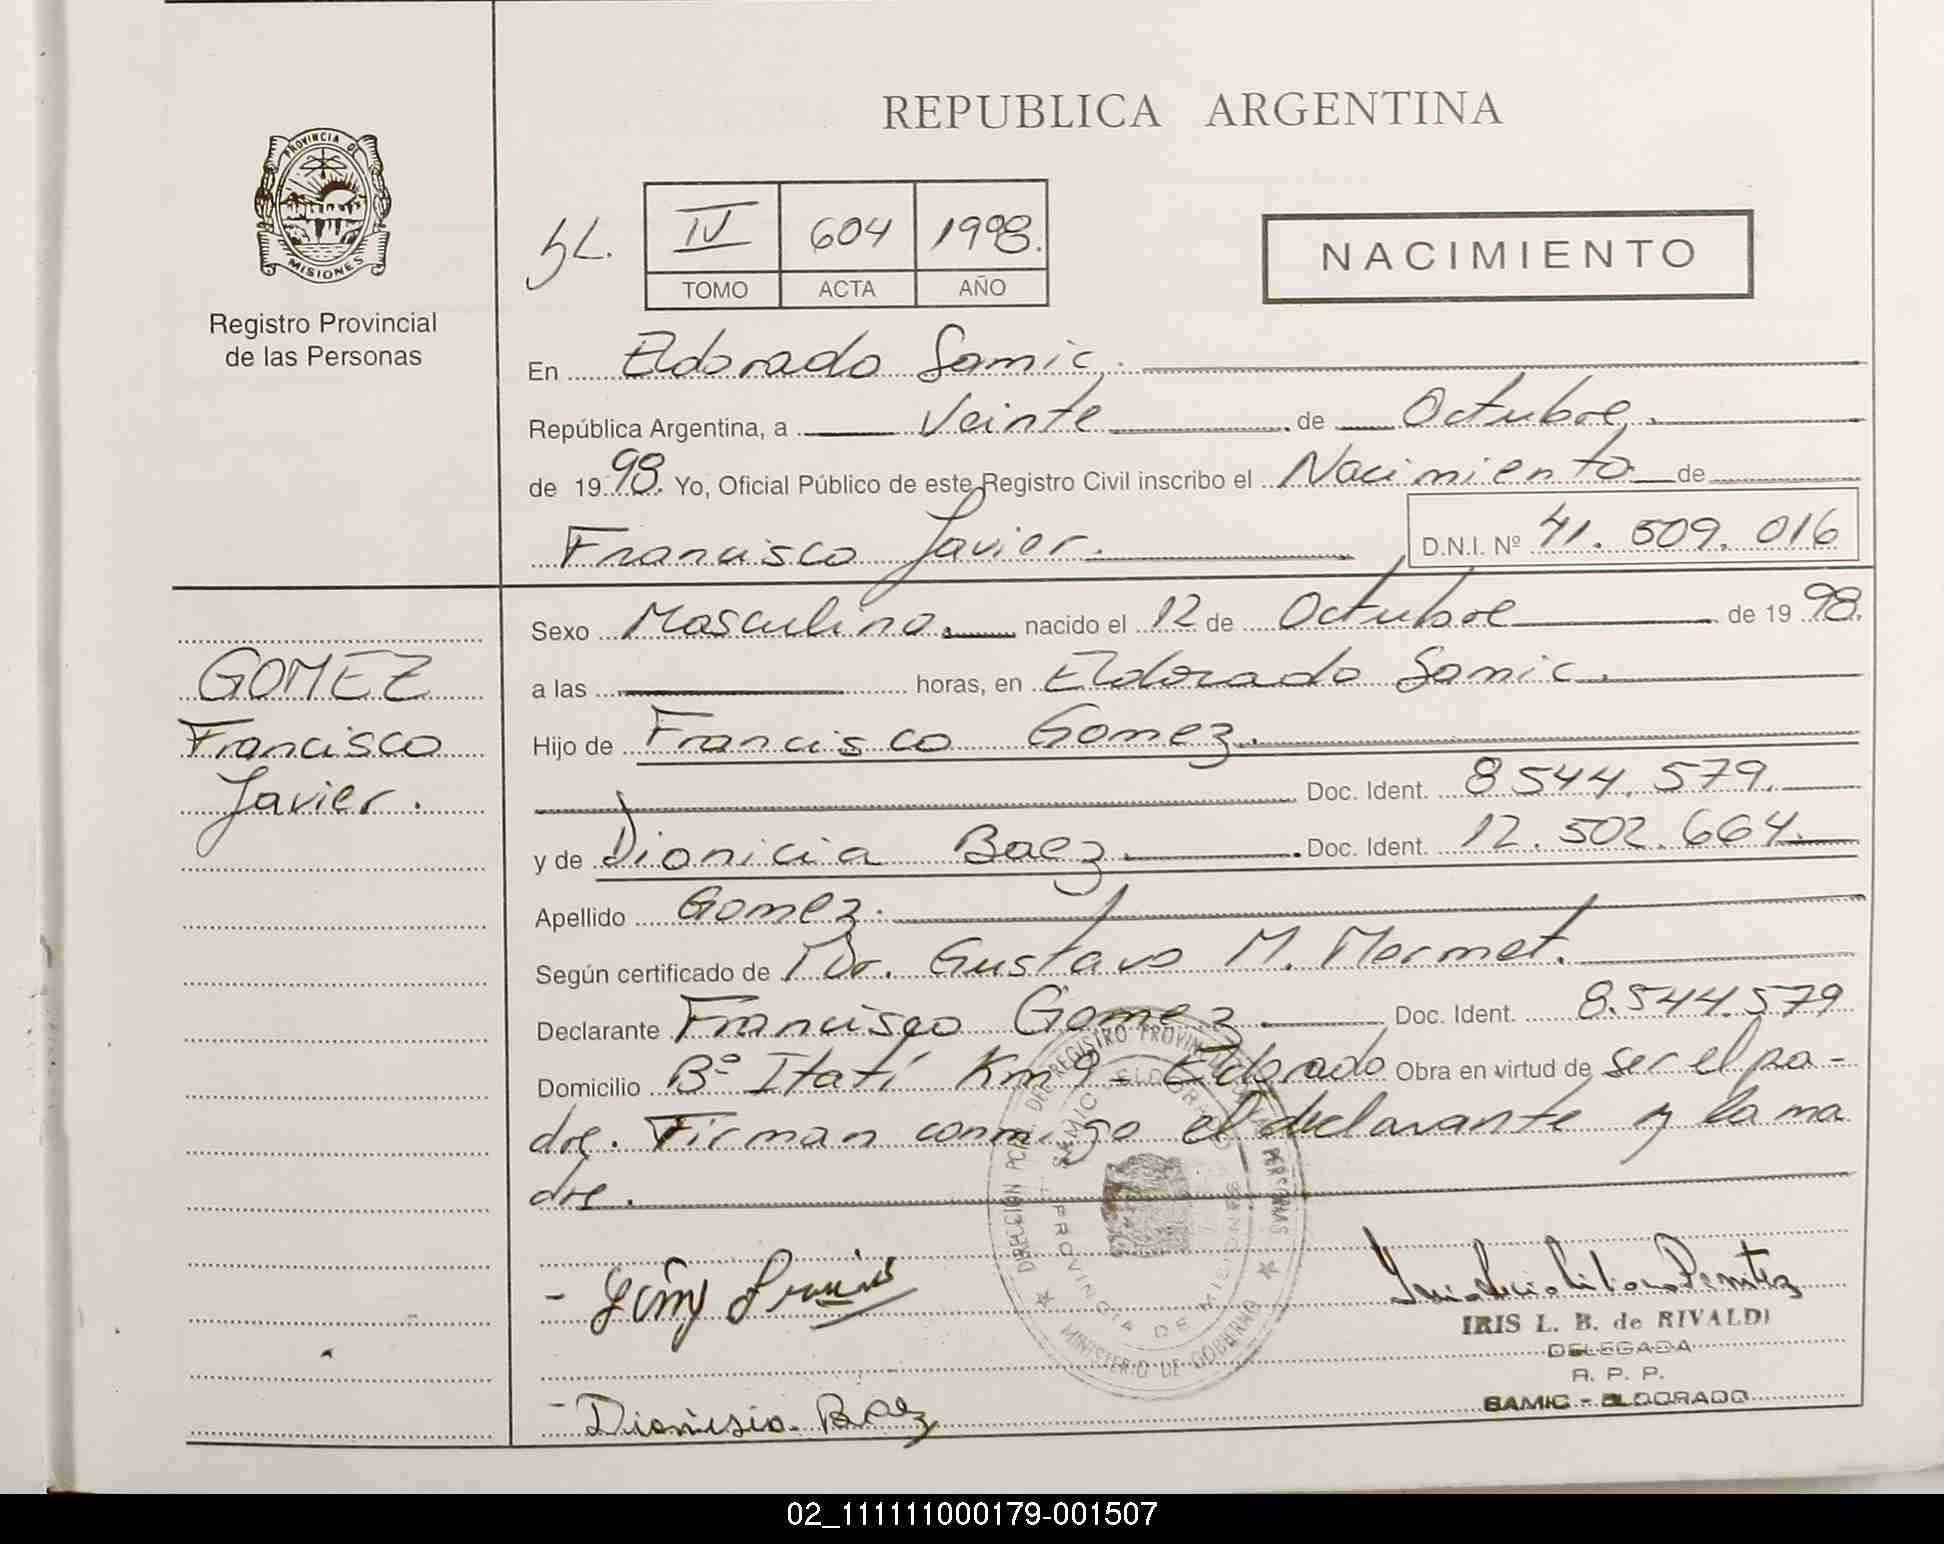 REPUBLICA ARGENTINA
PROVINCIA DE
MISIONES
Registro Provincial
de las Personas
IV 604 1998.
TOMO ACTA AÑO
NACIMIENTO
En Eldorado Samic.
República Argentina, a Veinte de Octubre.
de 1998. Yo, Oficial Público de este Registro Civil inscribo el Nacimiento de
Francisco Javier. D.N.I. Nº 41.509.016
Sexo Masculino. nacido el 12 de Octubre de 1998.
GOMEZ
Francisco
Javier.
a las horas, en Eldorado Samic.
Hijo de Francisco Gomez.
Doc. Ident. 8544.579.
y de Dionicia Baez. Doc. Ident. 12.502.664.
Apellido Gomez.
Según certificado de Dr. Gustavo M. Mermet.
Declarante Francisco Gomez. Doc. Ident. 8.544.579
Domicilio Bº Itatí Km 9 - Eldorado Obra en virtud de ser el pa-
dre. Firman conmigo el declarante y la ma
dre.
DIRECCION PCIAL. DEL REGISTRO PROVINCIAL DE LAS PERSONAS
MINISTERIO DE GOBIERNO
SAMIC ELDORADO
PROVINCIA DE MISIONES
IRIS L. B. de RIVALDI
DELEGADA
R. P. P.
SAMIC - ELDORADO
- Dionisia Baez
02_111111000179-001507